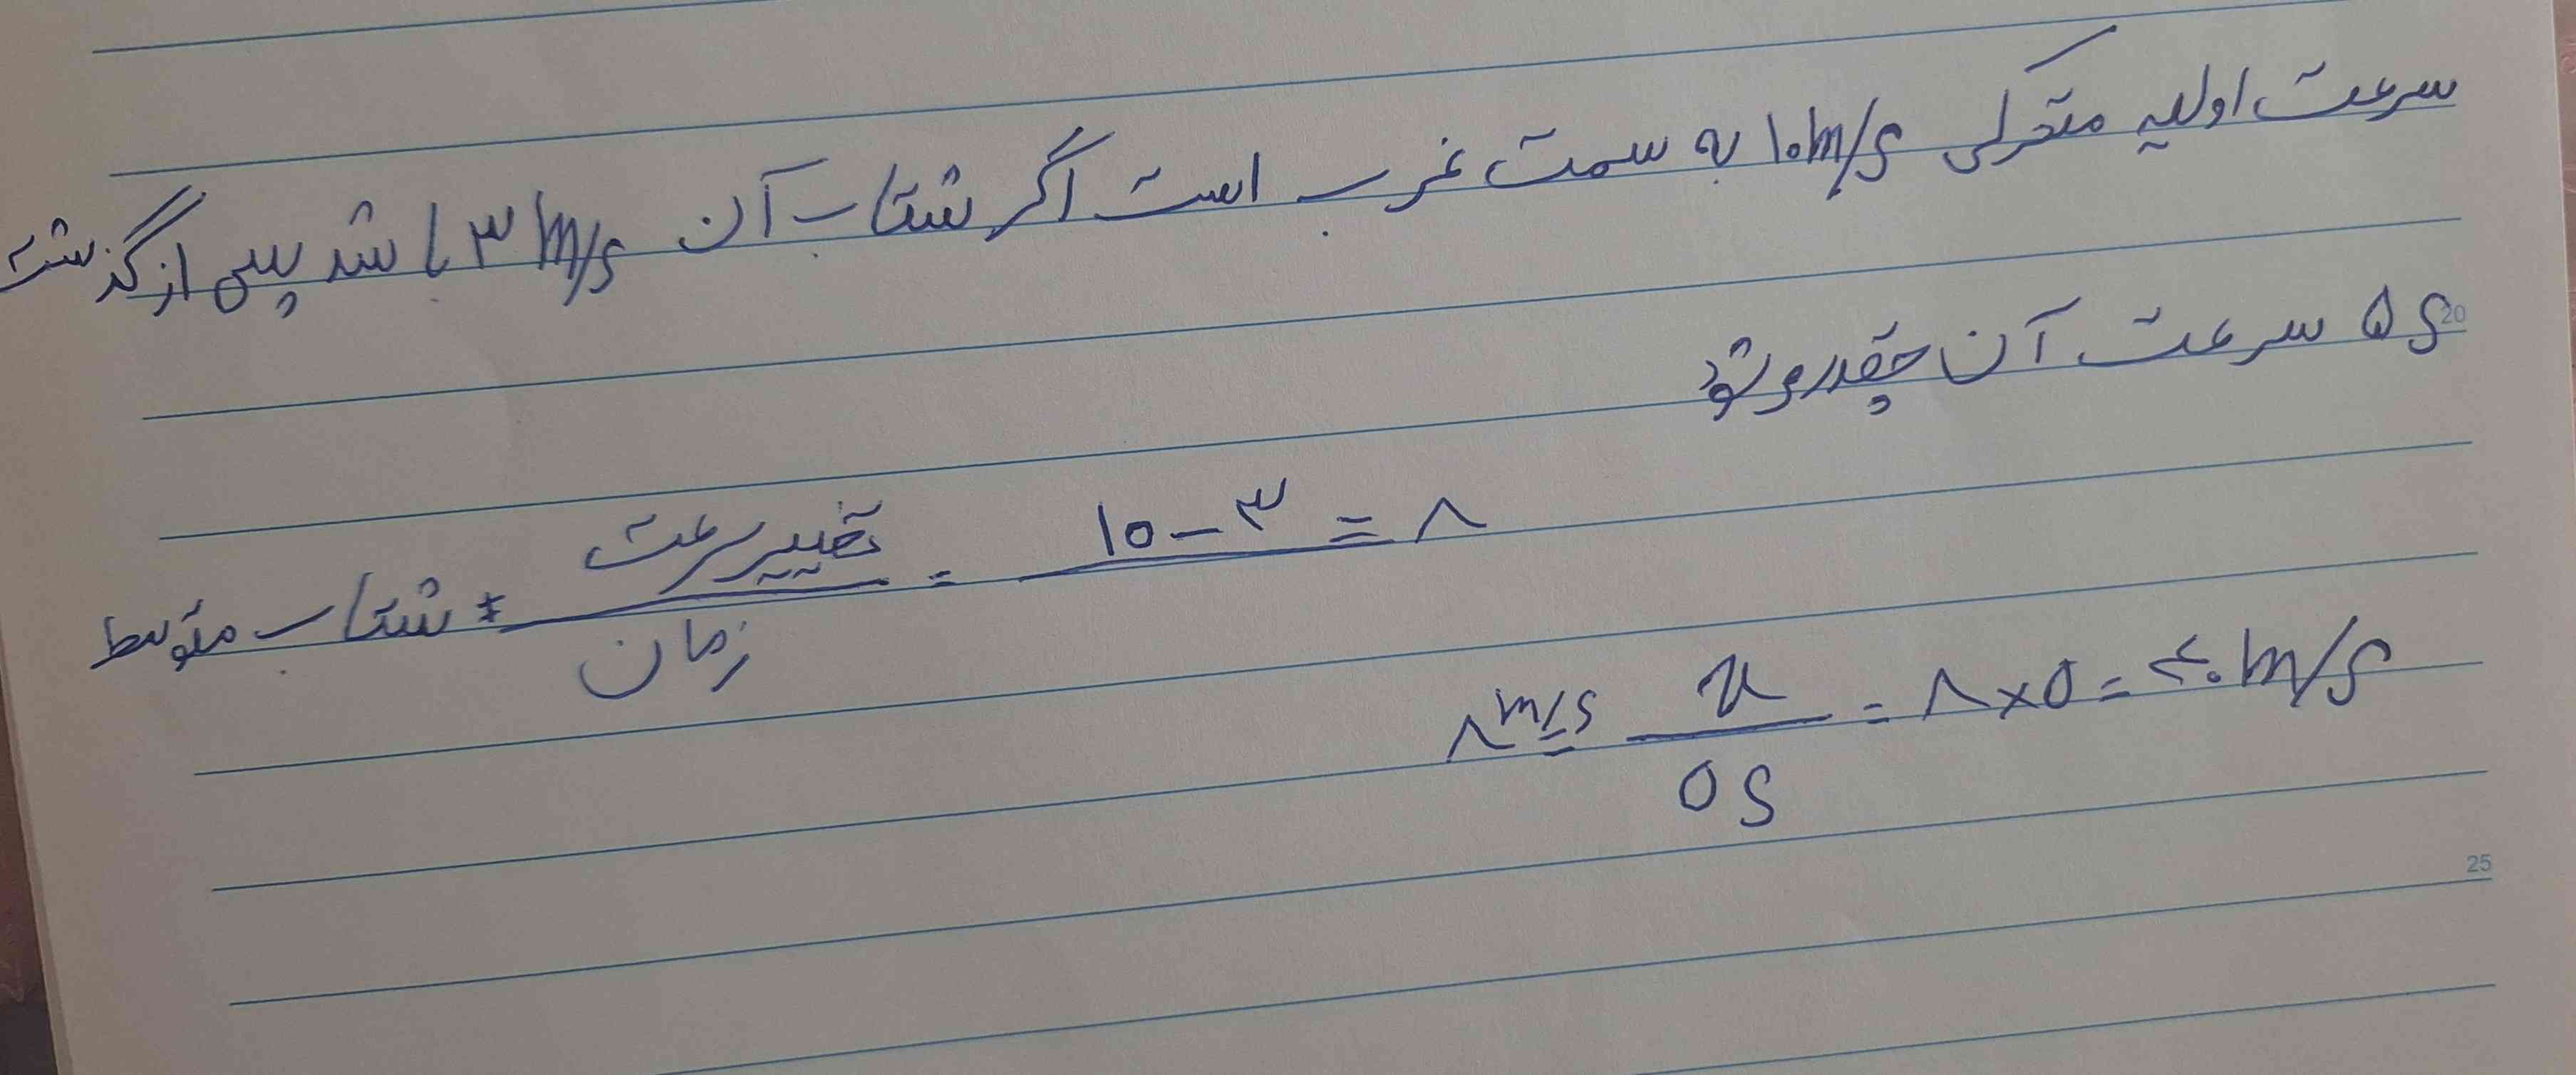 سرعت اولیه متحرکی ۱۰m/s به سمت غرب است اگر شتاب آن ۳m/s باشد پس از گذشت
۵s سرعت آن چقدر میشود
20
شتاب متوسط = تغییر سرعت / زمان = ۱۵-۳ = ۸
۸m/s = x / ۵s = ۸×۵ = ۴۰m/s
25